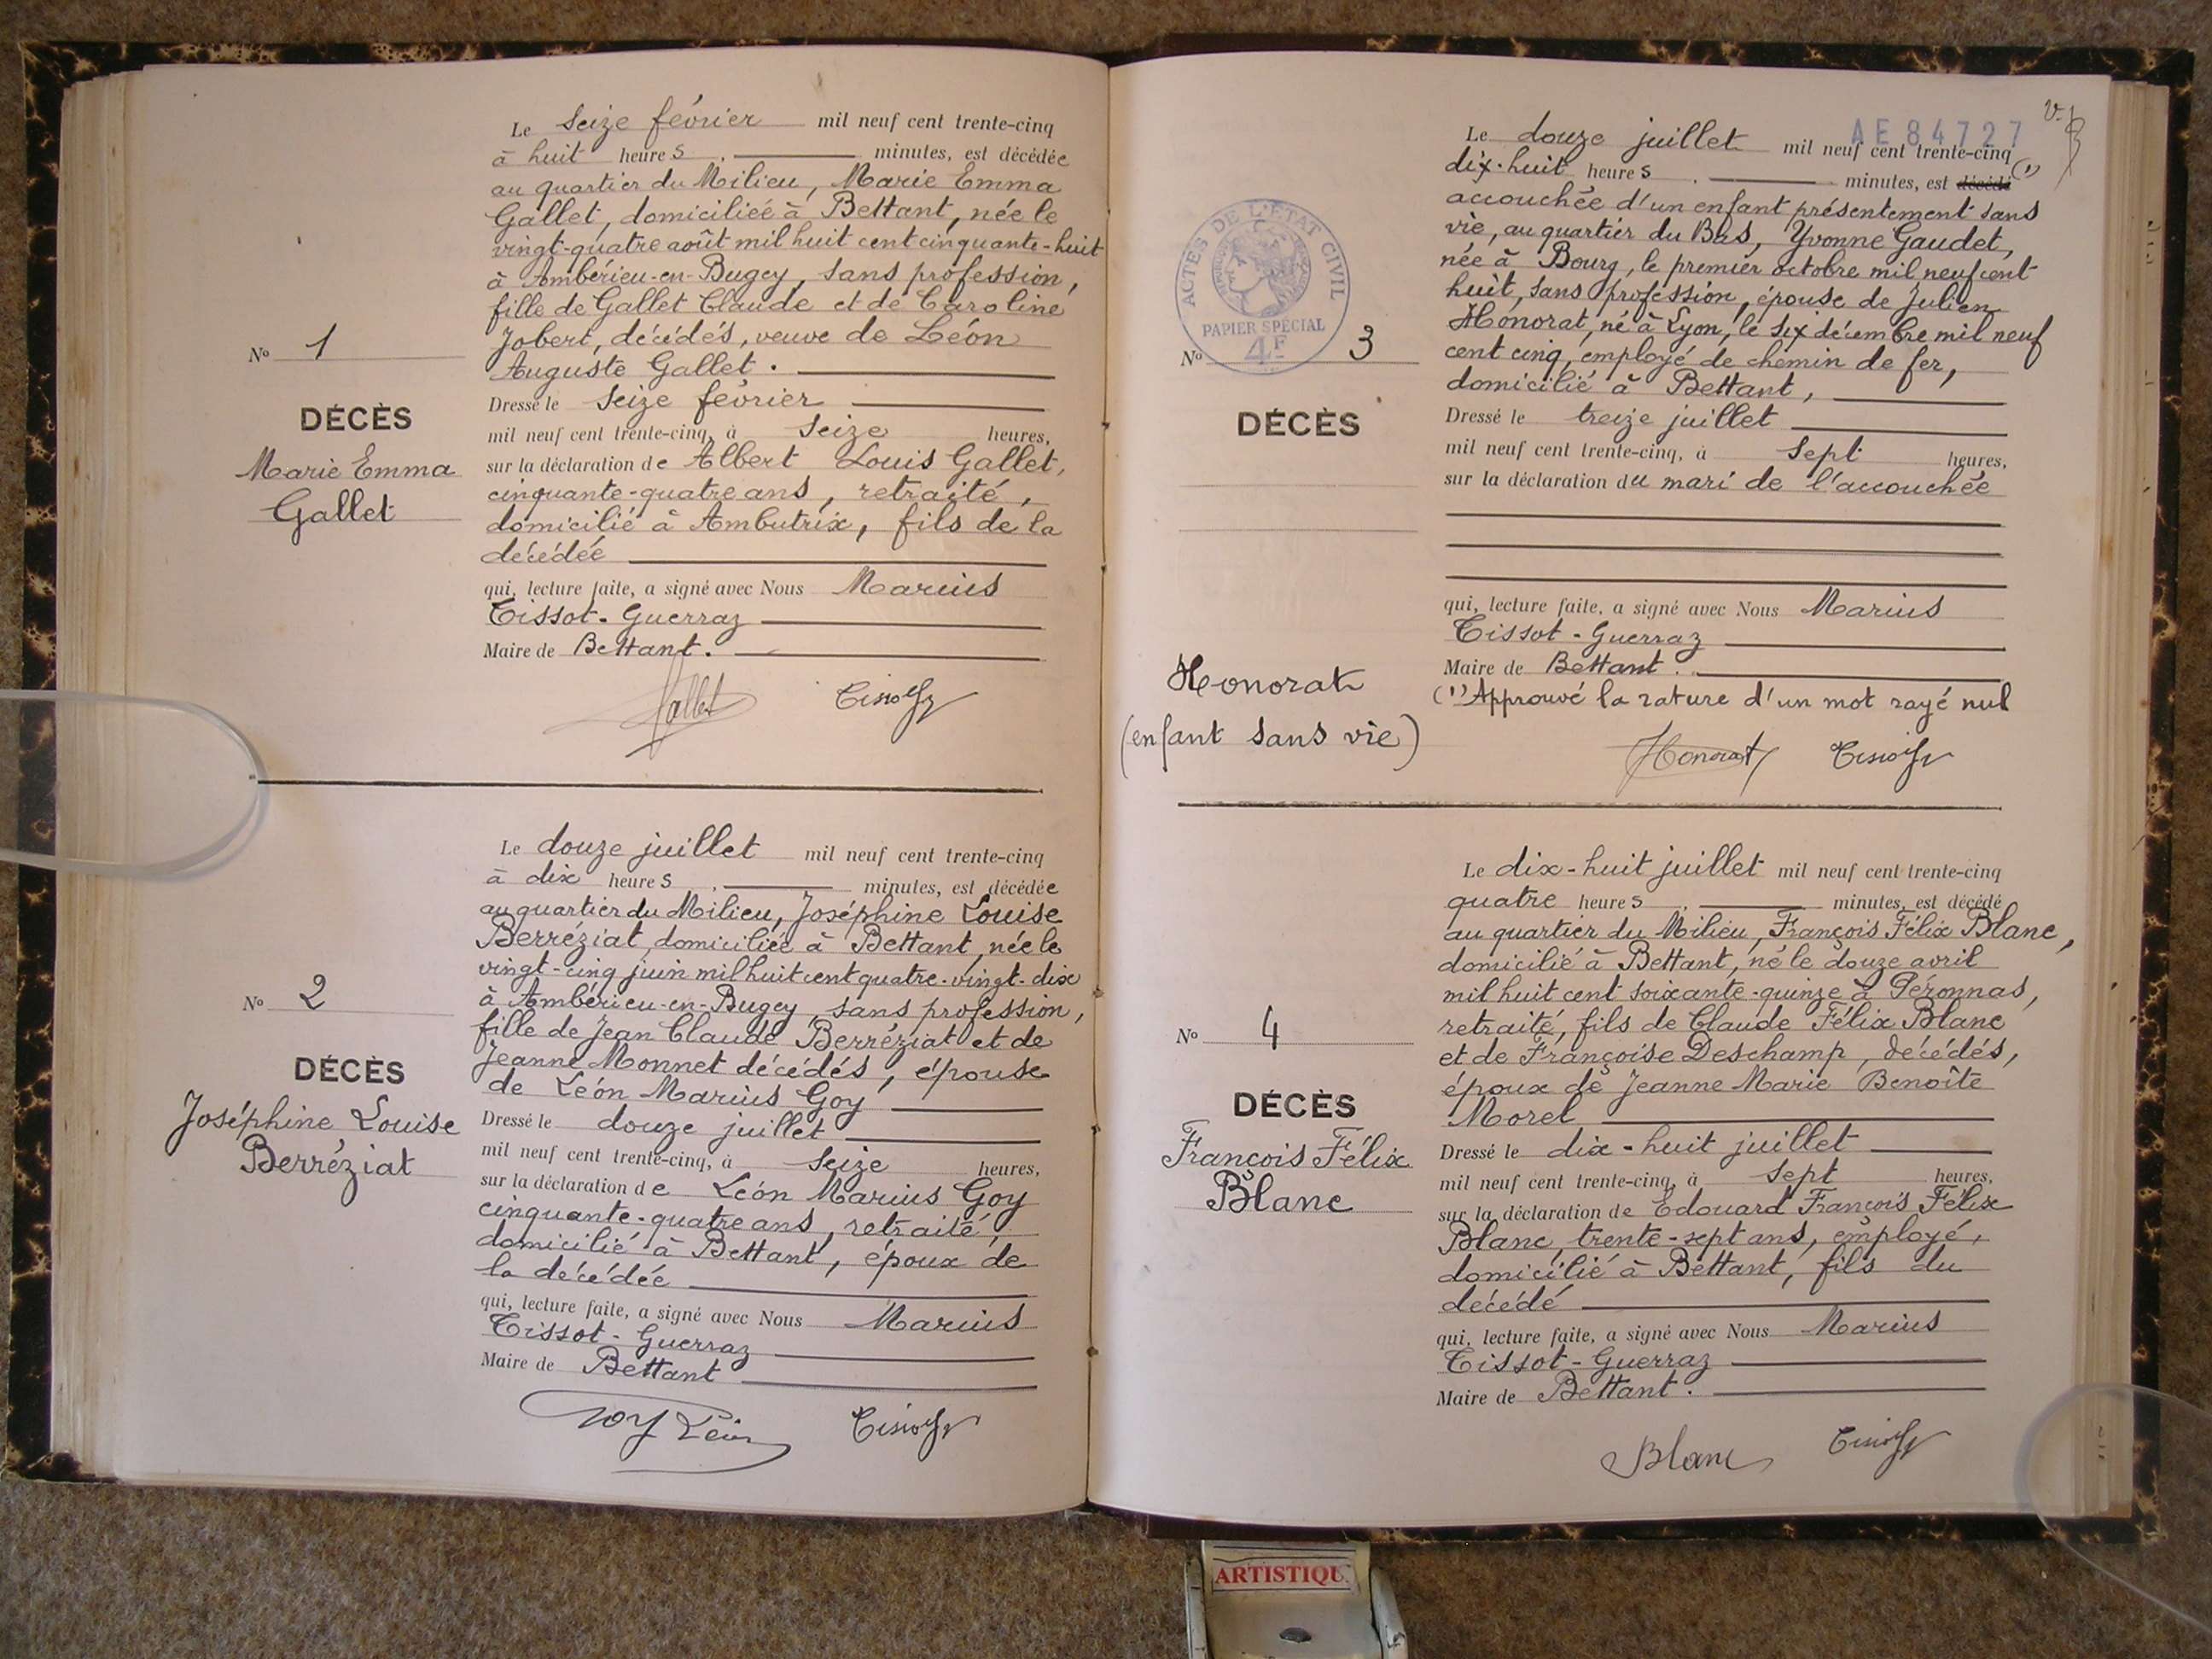 Le seize février mil neuf cent trente-cinq
à huit heures, minutes, est décédée
au quartier du Milieu, Marie Emma
Gallet, domiciliée à Bettant, née le
vingt-quatre août mil huit cent cinquante-huit
à Ambérieu-en-Bugey, sans profession,
fille de Gallet Claude et de Caroline
Jobert, décédés, veuve de Léon
Auguste Gallet.
Dressé le seize février
mil neuf cent trente-cinq, à seize heures,
sur la déclaration de Albert Louis Gallet,
cinquante-quatre ans, retraité,
domicilié à Ambutrix, fils de la
décédée
qui, lecture faite, a signé avec Nous Marius
Tissot-Guerraz
Maire de Bettant.
Gallet
No 1
DÉCÈS
Marie Emma
Gallet
Le douze juillet mil neuf cent trente-cinq
à dix heures, minutes, est décédée
au quartier du Milieu, Joséphine Louise
Berréziat, domiciliée à Bettant, née le
vingt-cinq juin mil huit cent quatre-vingt-dix
à Ambérieu-en-Bugey, sans profession,
fille de Jean Claude Berréziat et de
Jeanne Monnet décédés, épouse
de Léon Marius Goy
Dressé le douze juillet
mil neuf cent trente-cinq, à seize heures,
sur la déclaration de Léon Marius Goy
cinquante-quatre ans, retraité,
domicilié à Bettant, époux de
la décédée
qui, lecture faite, a signé avec Nous Marius
Tissot-Guerraz
Maire de Bettant
Goy Léon
No 2
DÉCÈS
Joséphine Louise
Berréziat
AE 84727
Le douze juillet mil neuf cent trente-cinq
dix-huit heures, minutes, est décédé (1)
accouchée d'un enfant présentement sans
vie, au quartier du Bas, Yvonne Gaudet,
née à Bourg, le premier octobre mil neuf cent
huit, sans profession, épouse de Julien
Honorat, né à Lyon, le six décembre mil neuf
cent cinq, employé de chemin de fer,
domicilié à Bettant,
Dressé le treize juillet
mil neuf cent trente-cinq, à sept heures,
sur la déclaration du mari de l'accouchée
qui, lecture faite, a signé avec Nous Marius
Tissot-Guerraz
Maire de Bettant.
(1) Approuvé la rature d'un mot rayé nul
Honorat
ACTES DE L'ÉTAT CIVIL
PAPIER SPÉCIAL
4F
No 3
DÉCÈS
Honorat
(enfant sans vie)
Le dix-huit juillet mil neuf cent trente-cinq
quatre heures, minutes, est décédé
au quartier du Milieu, François Félix Blanc,
domicilié à Bettant, né le douze avril
mil huit cent soixante-quinze à Péronnas,
retraité, fils de Claude Félix Blanc
et de Françoise Deschamp, décédés,
époux de Jeanne Marie Benoîte
Morel
Dressé le dix-huit juillet
mil neuf cent trente-cinq, à sept heures,
sur la déclaration de Edouard François Félix
Blanc, trente-sept ans, employé,
domicilié à Bettant, fils du
décédé
qui, lecture faite, a signé avec Nous Marius
Tissot-Guerraz
Maire de Bettant.
Blanc
No 4
DÉCÈS
François Félix
Blanc
ARTISTIQU